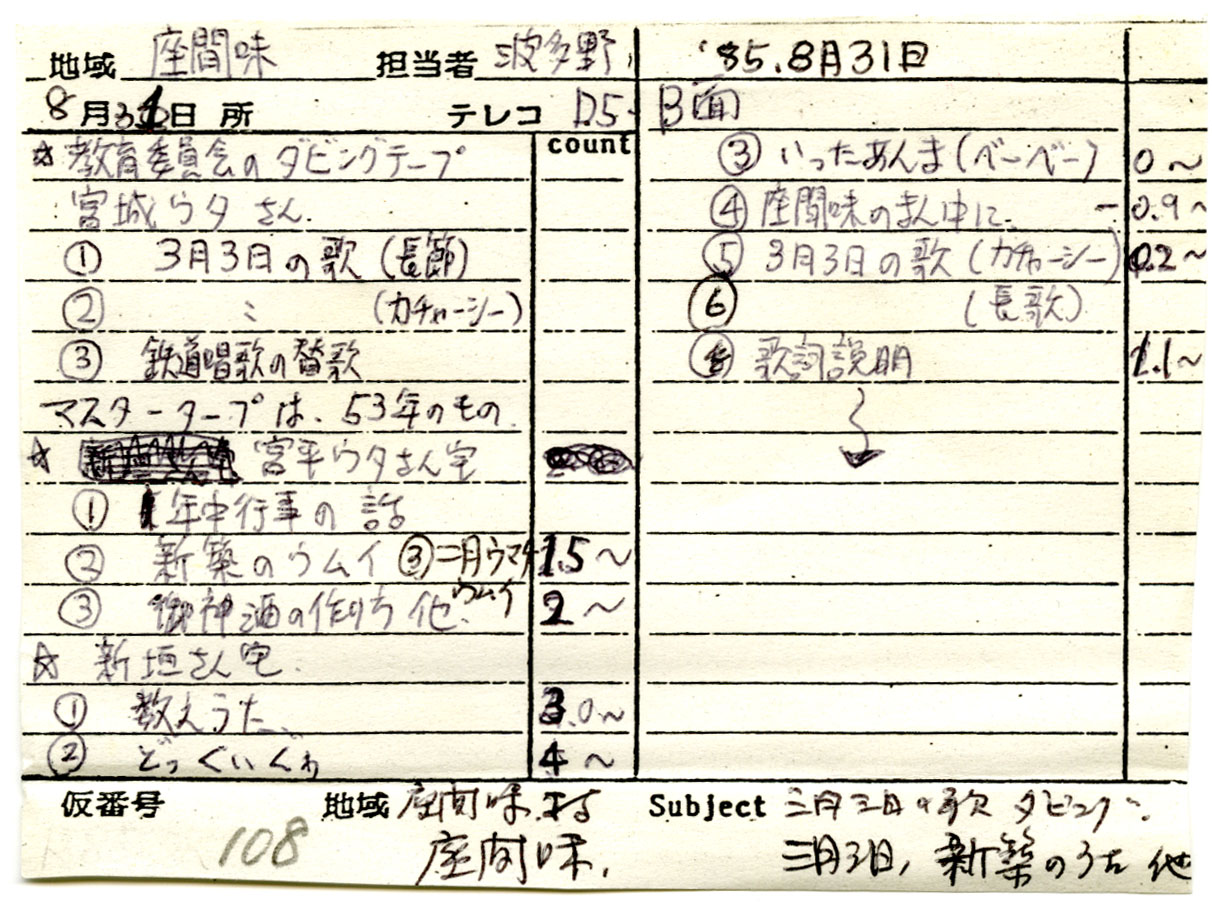 地域 座間味 担当者 波多野
8月31日 所 テレコ D5
count
☆教育委員会のダビングテープ
宮城ウタさん.
① 3月3日の歌(長節)
② 〃 (カチャーシー)
③ 鉄道唱歌の替歌
マスターテープは、53年のもの.
☆ 宮平ウタさん宅
① 年中行事の話
② 新築のウムイ ③二月ウマチ 1.5〜
ウムイ
③ 御神酒の作り方 他. 2〜
☆ 新垣さん宅.
① 数えうた 3.0〜
② どっくいくゎ 4〜
'85.8月31日
B面
③ いったあんま(べーべー) 0〜
④ 座間味のまん中に. 0.9〜
⑤ 3月3日の歌(カチャーシー) 〜
⑥ (長歌)
歌詞説明 1.1〜
仮番号 108
地域 座間味
座間味.
Subject 三月三日の歌 ダビング
三月3日, 新築のうた 他